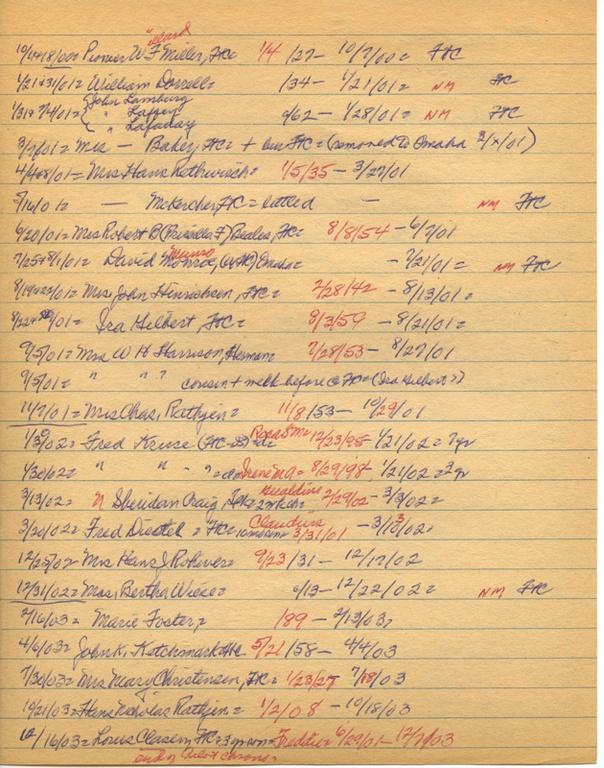 illard
10/4+18/00= Pioneer W F Miller, FC= 1/4/27- 10/7/00= FC
1/21+31/01= William Dorrell= /34- 1/21/01= NM FC
1/31+ 7/4/01= John Lamburg
" Laffen
" Lafaday 9/62- 1/28/01= NM FC
3/7/01= Mrs - Baker, FC= + live FC= (removed to Omaha 3/x/01)
4/4+8/01= Mrs Hans Rathwisch= 1/5/35 - 3/27/01
5/16/01= - McKercher, FC= settled - NM FC
6/20/01= Mrs Robert B (Priscilla F) Beales, FC= 8/8/54 - 6/7/01
Munro
7/25+8/1/01= David Monroe, Omaha= - 7/21/01= NM FC
8/14+22/01= Mrs John Hinrichsen, FC= 2/28/42 - 8/13/01=
8/22+ /01= Ira Hilbert FC= 8/3/59 - 8/21/01=
9/5/01= Mrs W H Harrison, Herman= 7/28/53 - 8/27/01
9/5/01= " " ? cousin + melk before @ FC= (Ira Hilbert?)
11/7/01= Mrs Chas, Rathjen= 11/8/53- 10/29/01
1/30/02= Fred Kruse Rosa S M= 12/23/95- 1/21/02= 7 yr
1/30/02= " " - "= Irene M A= 8/29/98- 1/21/02= 3 yr
3/13/02= N Sheridan Craig, Geraldine 2/29/02- 3/3/02=
3/20/02= Fred Diestel = FC= 10 mo son= Claudius 3/31/01 - 3/10/02=
12/25/02= Mrs Hans J Rohwer= 9/23/31 - 12/17/02
12/31/02= Mrs, Bertha Wiese= 6/13- 12/22/02= NM FC
2/16/03= Marie Foster, = /89 - 2/13/03,
4/6/03= John K. Ketchmark FC 5/21/58- 4/4/03
7/30/03= Mrs Mary Christensen, FC= 1/23/27 7/18/03
10/21/03= Hans Nicholas Rathjen= 1/2/08 - 10/18/03
12/16/03= Louis Clasen, FC= 3 yr son= Freddie= 6/29/01- 12/7/03
end of Pilot chrono=